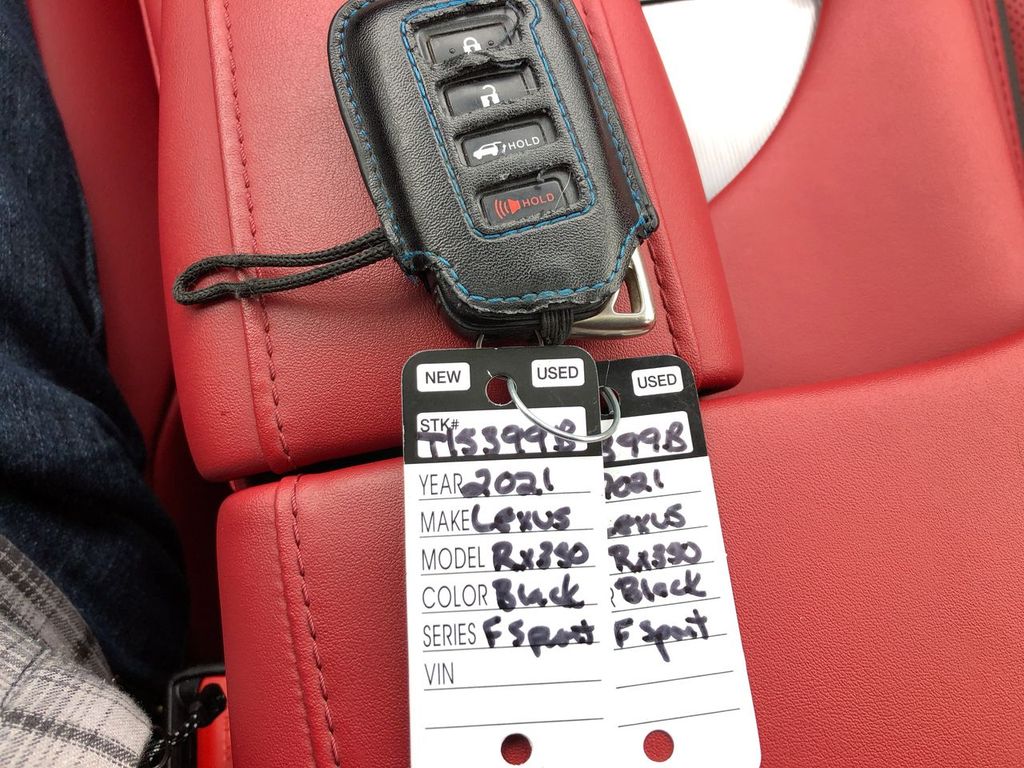 HOLD
HOLD
NEW USED
STK#
T15399B
YEAR 2021
MAKE Lexus
MODEL Rx350
COLOR Black
SERIES F Sport
VIN
USED
399B
2021
exus
Rx350
Black
F Sport